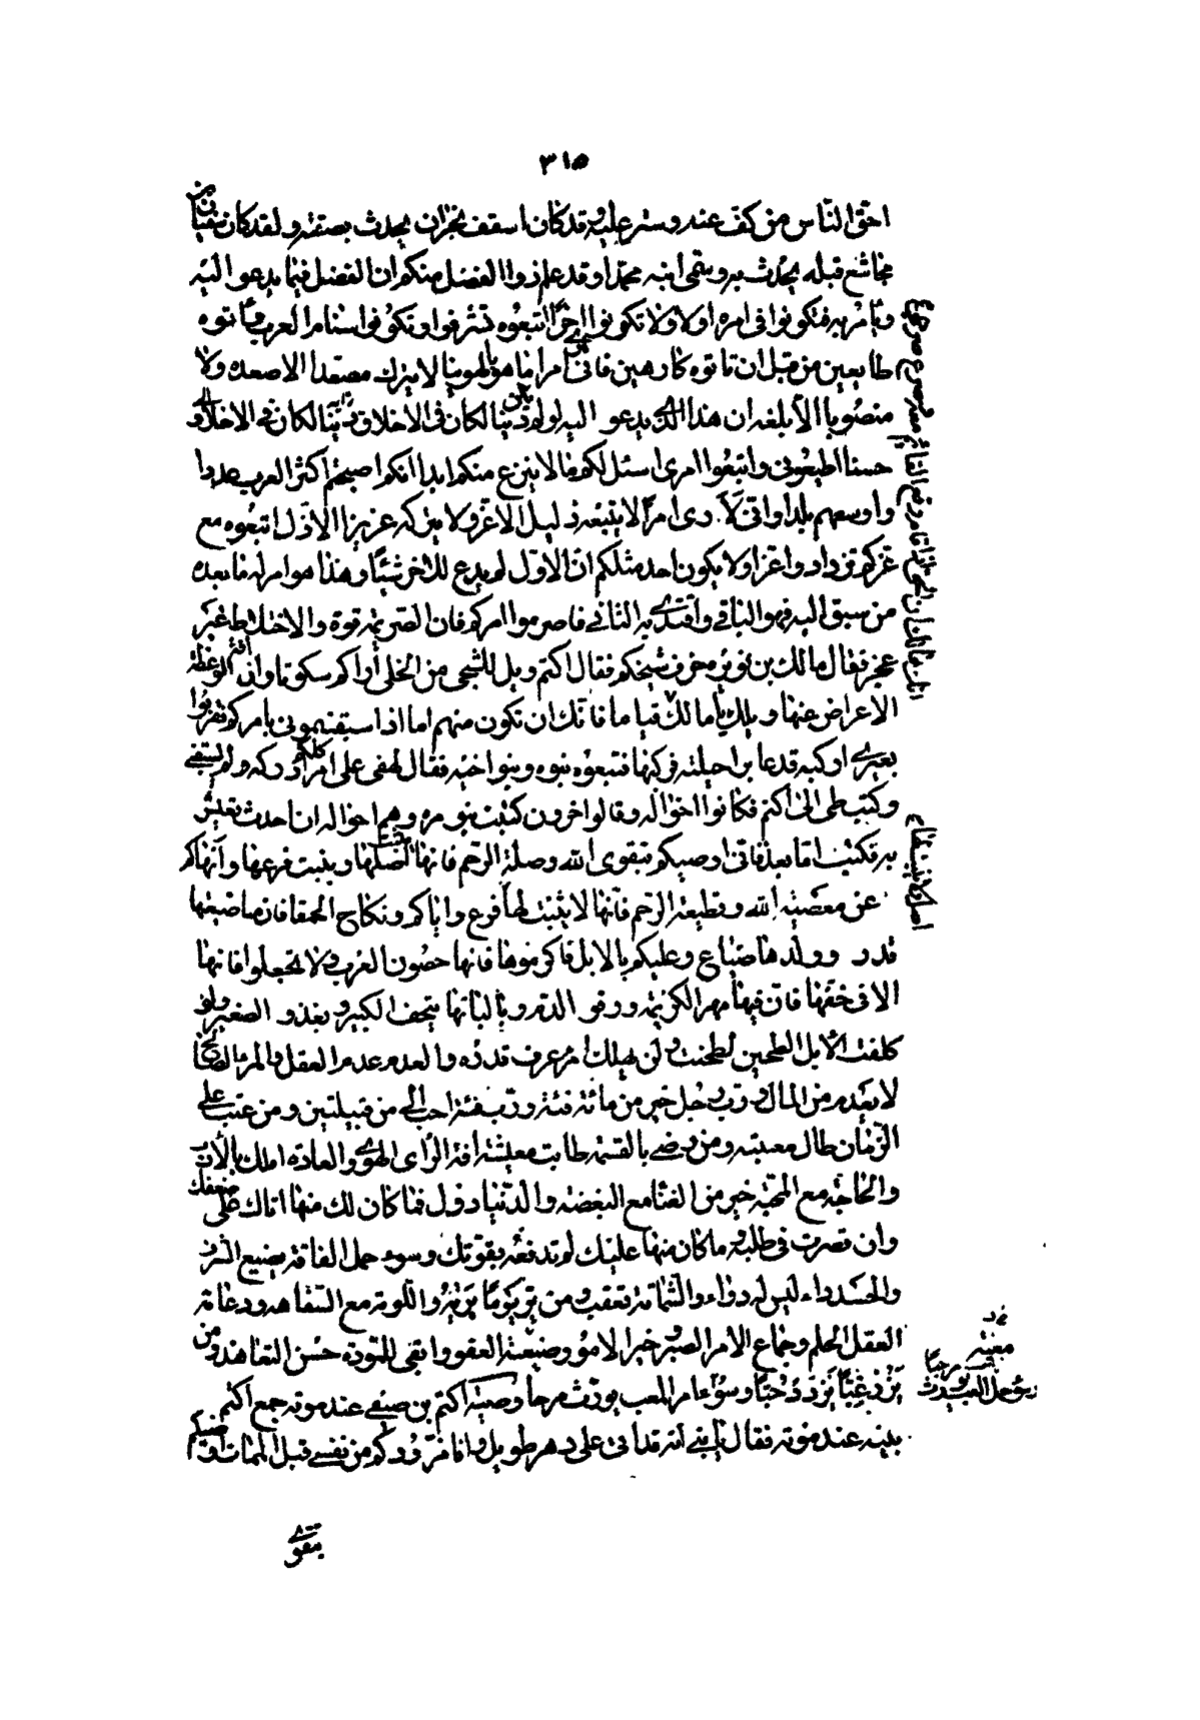 ٣١٥
احق الناس من كف عنه وستر عليه وقد كان اسقف نجران يحدث بصفته ولقد كان سفيان بن
مجاشع قبله يحدث به وسمى ابنه محمدا وقد علم ذووا الفضل منكم ان الفضل فيما يدعو اليه
ويامر به فكونوا فى امره اولا ولا تكونوا اخرا اتبعوه تشرفوا وتكونوا سنام العرب واتوه
طايعين من قبل ان تاتوه كارهين فانى ارى امرا ما هو بالهوينا لا يترك مصعدا الا صعده ولا
منصوبا الا بلغه ان هذا الذى يدعو اليه لو لم يكن دينا لكان فى الاخلاق
حسنا اطيعونى واتبعوا امرى اسئل لكم ما لا ينزع منكم ابدا انكم اصبحتم اكثر العرب عددا
واوسعهم بلدا وانى لا رى امرا لا يتبعه ذليل الا عز ولا يتركه عزيز الا ذل اتبعوه مع
عزكم تزدادوا عزا ولا يكون احد مثلكم ان الاول لم يدع للاخر شيئا وهذا هو امر له ما بعده
من سبق اليه فهو الباقى واقتدى به الثانى فاصرموا امركم فان الصريمة قوة والاختلاط عجز
عجز فقال مالك بن نويره خرف شيخكم فقال اكثم ويل للشجى من الخلى اراكم سكوتا وان آفة الموعظة
الاعراض عنها ويلك يا مالك انك ان تكون منهم اما اذا سبقتمونى بامركم فقربوا
بعيرى اركبه فدعا براحلته فركبها فتبعوه بنوه وبنوا اخيه فقال لهفى على امر لم ادركه ولم يسبقنى
وكتب طى الى اكثم فكانوا اخواله وقال اخرون كتبت بنو مره وهم اخواله ان احدث نعيش
به فكتب اما بعد فانى اوصيكم بتقوى الله وصلة الرحم فانها تثبت اصلها وينبت فرعها وانهاكم
عن معصية الله وقطيعة الرحم فانها لا يثبت لها فرع واياكم ونكاح الحمقا فان مباضعتها
قدر وولدها ضياع وعليكم بالابل فاكرموها فانها حصون العرب ولا تجعلوا رقابها
الا فى حقها فان فيها مهر الكريمة ورقو الدم وبالبانها يتحف الكبير ويغذو الصغير ولو
كلفت الابل الطحين لطحنت ولن يهلك امرء عرف قدره والعدم عدم العقل والمرء الصالح
لا يعدم من المال ورب رجل خير من مائة فئة ورب فئة احب الى من قبيلتين ومن عتب على
الزمان طال معتبته ومن رضى بالقسم طابت معيشته افة الراى الهوى والعاده املك بالادب
والحاجة مع المحبة خير من الغنا مع البغضة والدنيا دول فما كان لك منها اتاك على ضعفك
وان قصرت فى طلبه وما كان منها عليك لم تدفعه بقوتك وسوء حمل الفاقة يضيع الشرف
والحسد داء ليس له دواء والشماتة تعقب ومن ير يوما يره واللومة مع السفاهه ودعامة
العقل الحلم وجماع الامر الصبر وخير الامور مغبة العفو وابقى المودة حسن التعاهد ومن
يزر غبا يزدد حبا وصية اكثم بن صيفى عند موته جمع اكثم
بنيه عند موته فقال يا بنى انه قد اتى على دهر طويل وانا مزودكم من نفسى قبل الممات اوصيكم
بتقوى